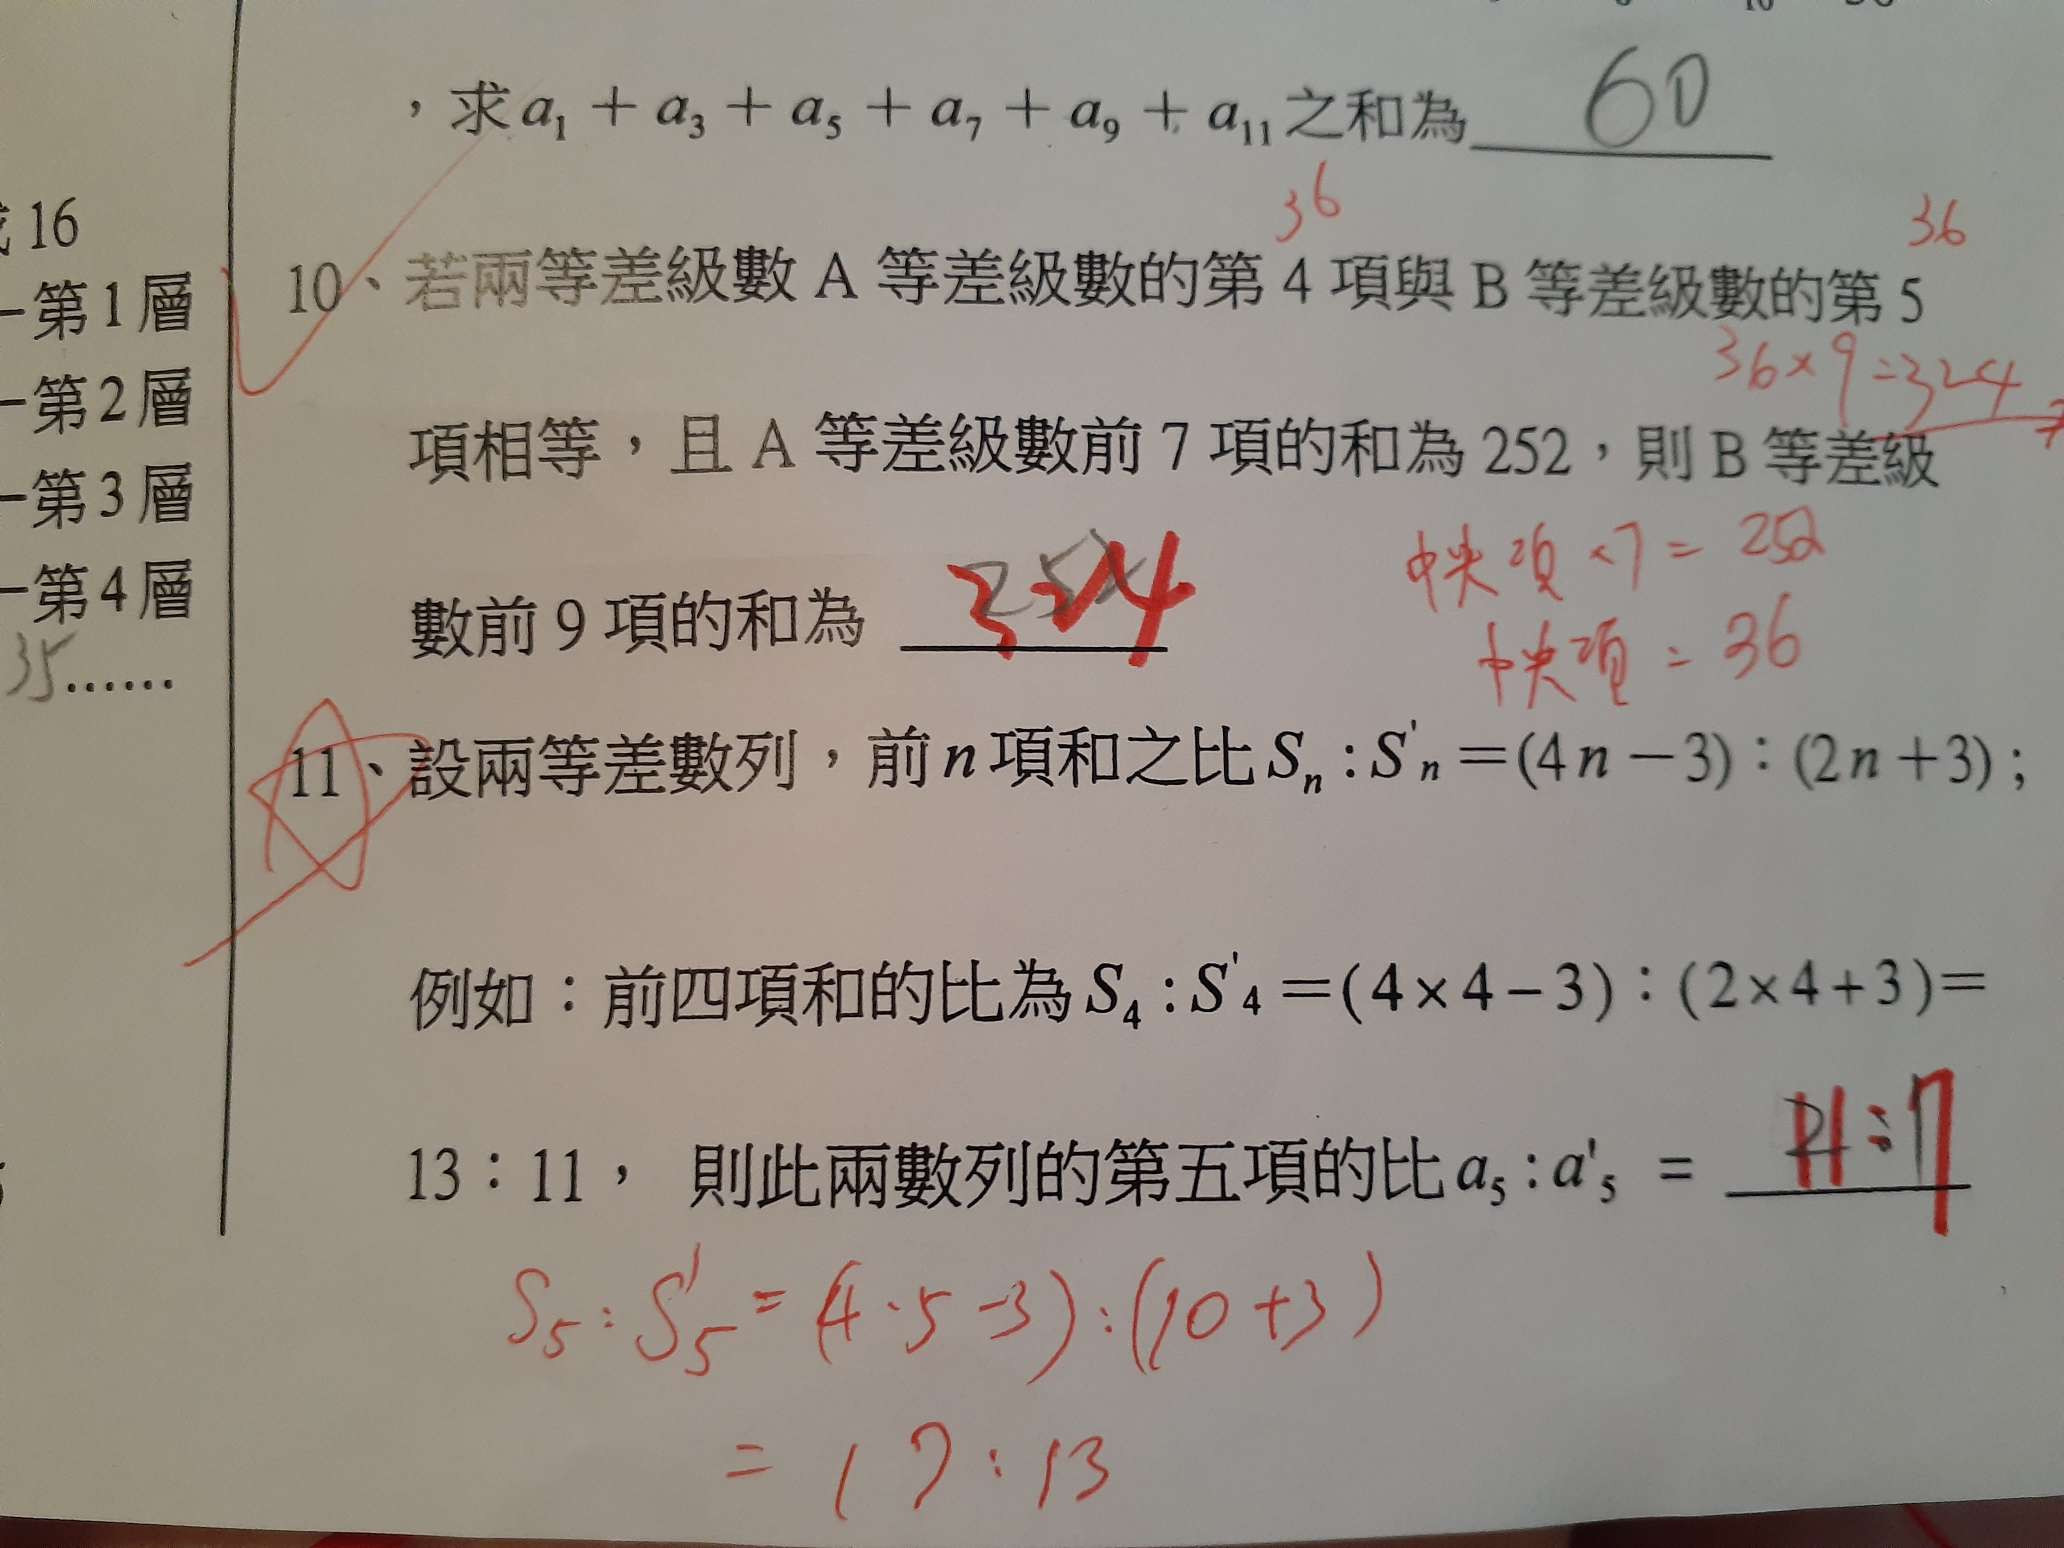 ，求a₁＋a₃＋a₅＋a₇＋a₉＋a₁₁之和為 60
16
－第1層
－第2層
－第3層
－第4層
35……
36 36
10、若兩等差級數A等差級數的第4項與B等差級數的第5
36×9=324
項相等，且A等差級數前7項的和為252，則B等差級
中央項×7=252
數前9項的和為 324
中央項=36
11、設兩等差數列，前n項和之比Sₙ:S'ₙ＝(4n－3)：(2n＋3)；
例如：前四項和的比為S₄:S'₄＝(4×4－3)：(2×4+3)＝
13：11， 則此兩數列的第五項的比a₅:a'₅ = 11:7
S₅:S'₅=(4·5-3):(10+3)
=17:13